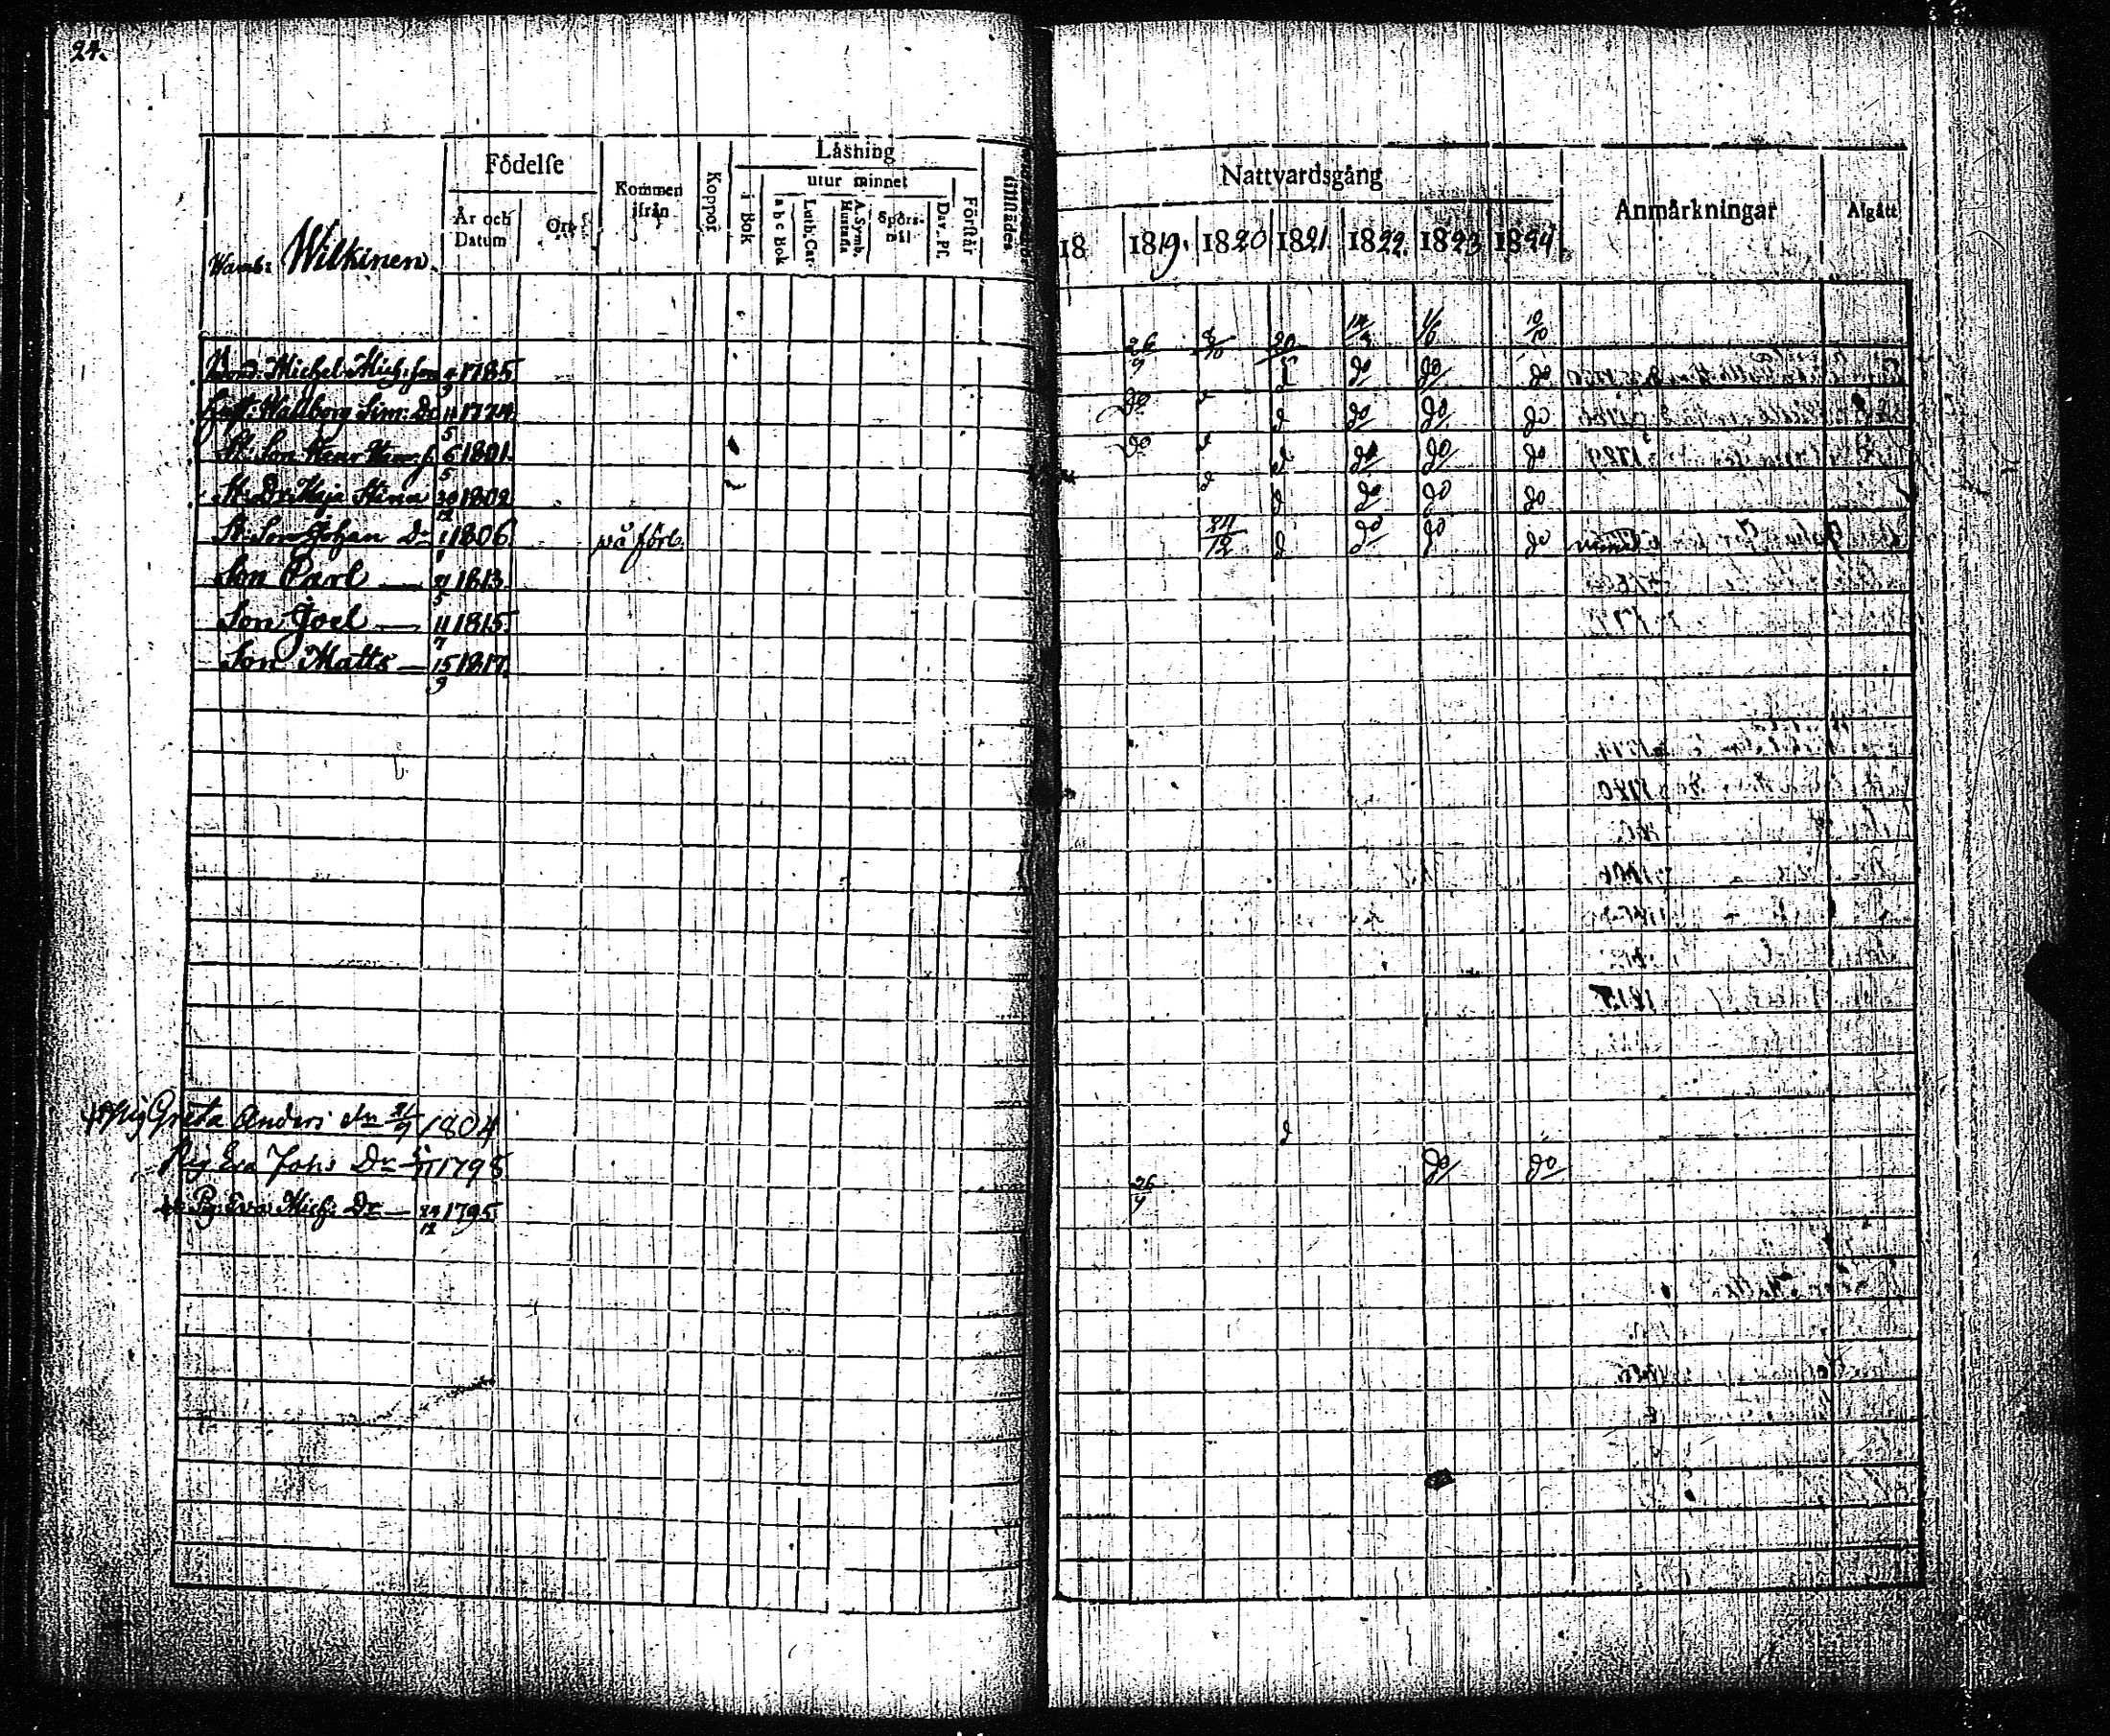 24.
Födelse
Kommen ifrån
Koppor
Låsning
utur minnet
i Bok
a b c Bok
Luth. Cat.
A. Symb. Hustafla
Spörsmål
Dav. Ps.
Förstår
År och Datum
Ort
Wamb: Wilkinen.
Nattvardsgång
Anmårkningar
Afgått
18 1819. 1820 1821 1822. 1823 1824.
26/9 8/10 20/5 14/3 1/6 10/10
Bond. Michel Mich:son 4/9 1785. do do do
Hust. Wallborg Sim: Dr 11/5 1774. do d do do do
St: Son Henr Henr. s. 6/5 1801. do d do do do
St: Dr: Maja Stina 30/12 1802 d d do do do
St: Son Johan Do 1/1 1806. på förb. 24/12 d do do do
Son Carl — 21/5 1813.
Son Joel — 11/7 1815.
Son Matts — 15/9 1817.
Pig Greta Anders dr 21/9 1804 d
Pig Eva Johs Dr 1795 do do
Pig Eva Mich: Dr — 24/12 1795. 26/9